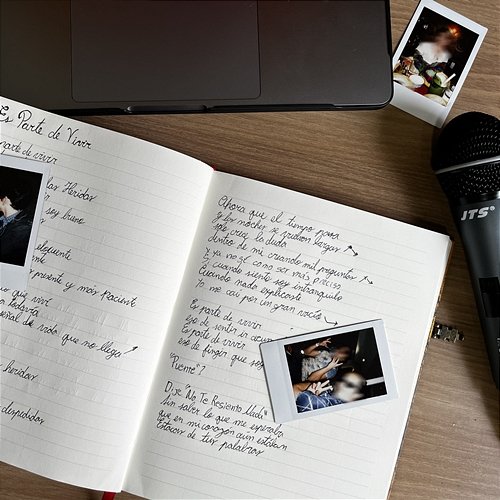 Es Parte de Vivir
parte de vivir
las Heridas
soy bueno
elocuente
presente y más paciente
que viví
todavía
señal de vida que no llega
heridas
despedidas
Ahora que el tiempo pasa
Y las noches se vuelven largas
solo crece la duda
dentro de mi creando mil preguntas
Y ya no sé como ser más preciso
Es cuando siento soy intranquilo
Cuando nada explicaste
Yo me caí por un gran vacío
Es parte de vivir
eso de sentir
Es parte de vivir
eso de fingir que soy
"Puente"?
Dije "No Te Resiento Nada"
Sin saber lo que me esperaba
que en mi corazón aún estaban
Estacas de tus palabras
ITS